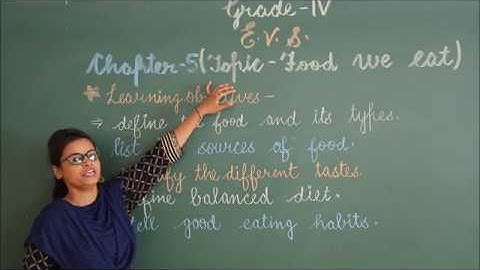 Grade-IV
E.V.S.
Chapter-5(Topic-Food we eat)
* Learning objectives-
⇒ define food and its types.
list sources of food.
the different tastes.
define balanced diet.
tell good eating habits.